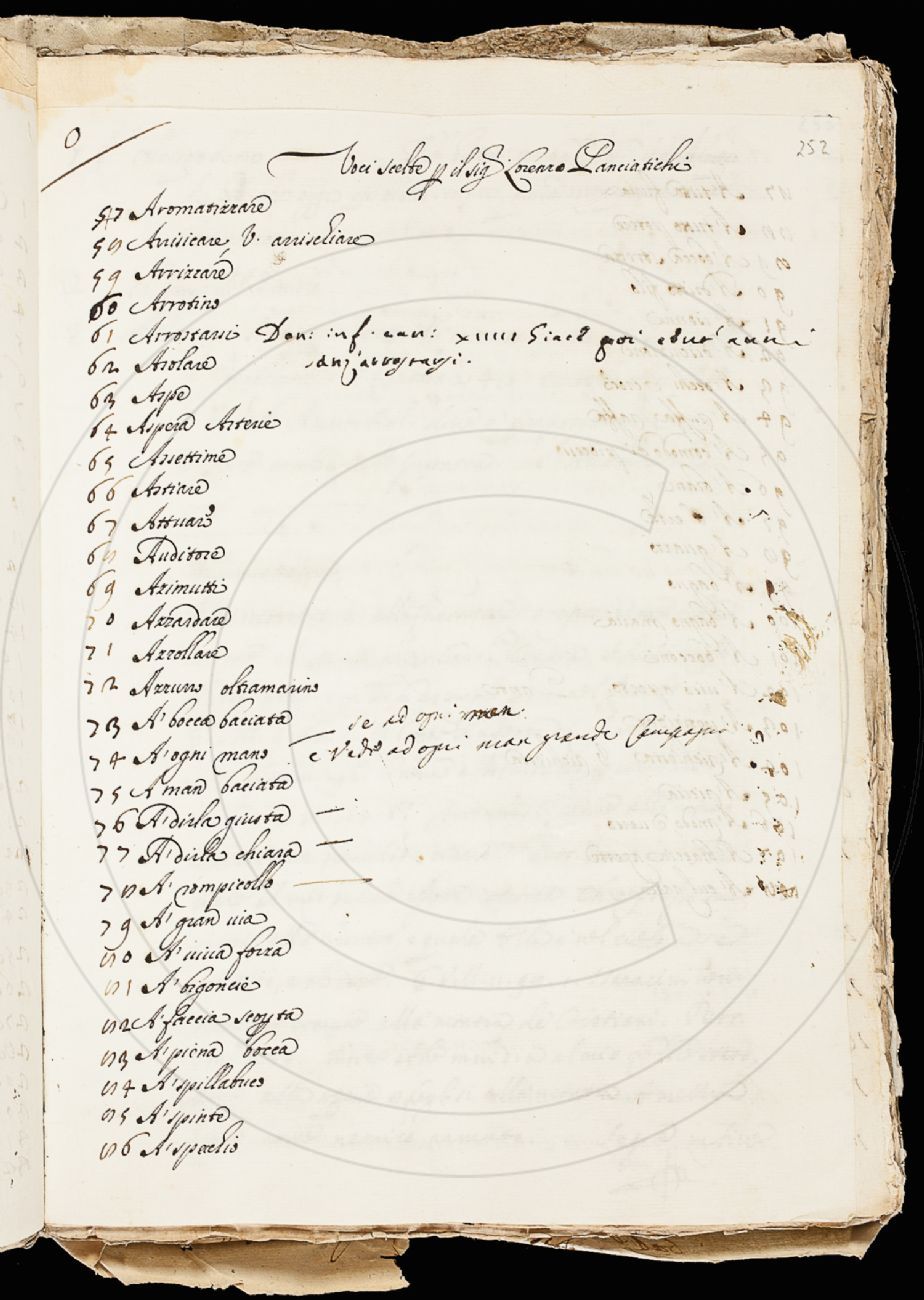 0
252
Voci scelte p il sig. Lorenzo Panciatichi
57 Aromatizzare
58 Arrisicare, V. arrischiare
59 Arrizzare
60 Arrotino
61 Arrostarsi Dan: inf: can:
62 Asolare s'arrostarsi.
63 Aspe
64 Aspera Arterie
65 Assettime
66 Astiare
67 Attuare
68 Auditore
69 Azimutti
70 Azzardare
71 Azzollare
72 Azzurro oltramarino
73 A' bocca baciata — se ad ogni man
74 A' ogni mano — e Vede ad ogni man grande
75 A man baciata
76 A' dirla giusta —
77 A' dirla chiara —
78 A' rompicollo —
79 A' gran via
80 A' viva forza
81 A' bigoncie
82 A' faccia scop̱ta
83 A' piena bocca
84 A' spillabuco
85 A' spinte
86 A' spachio